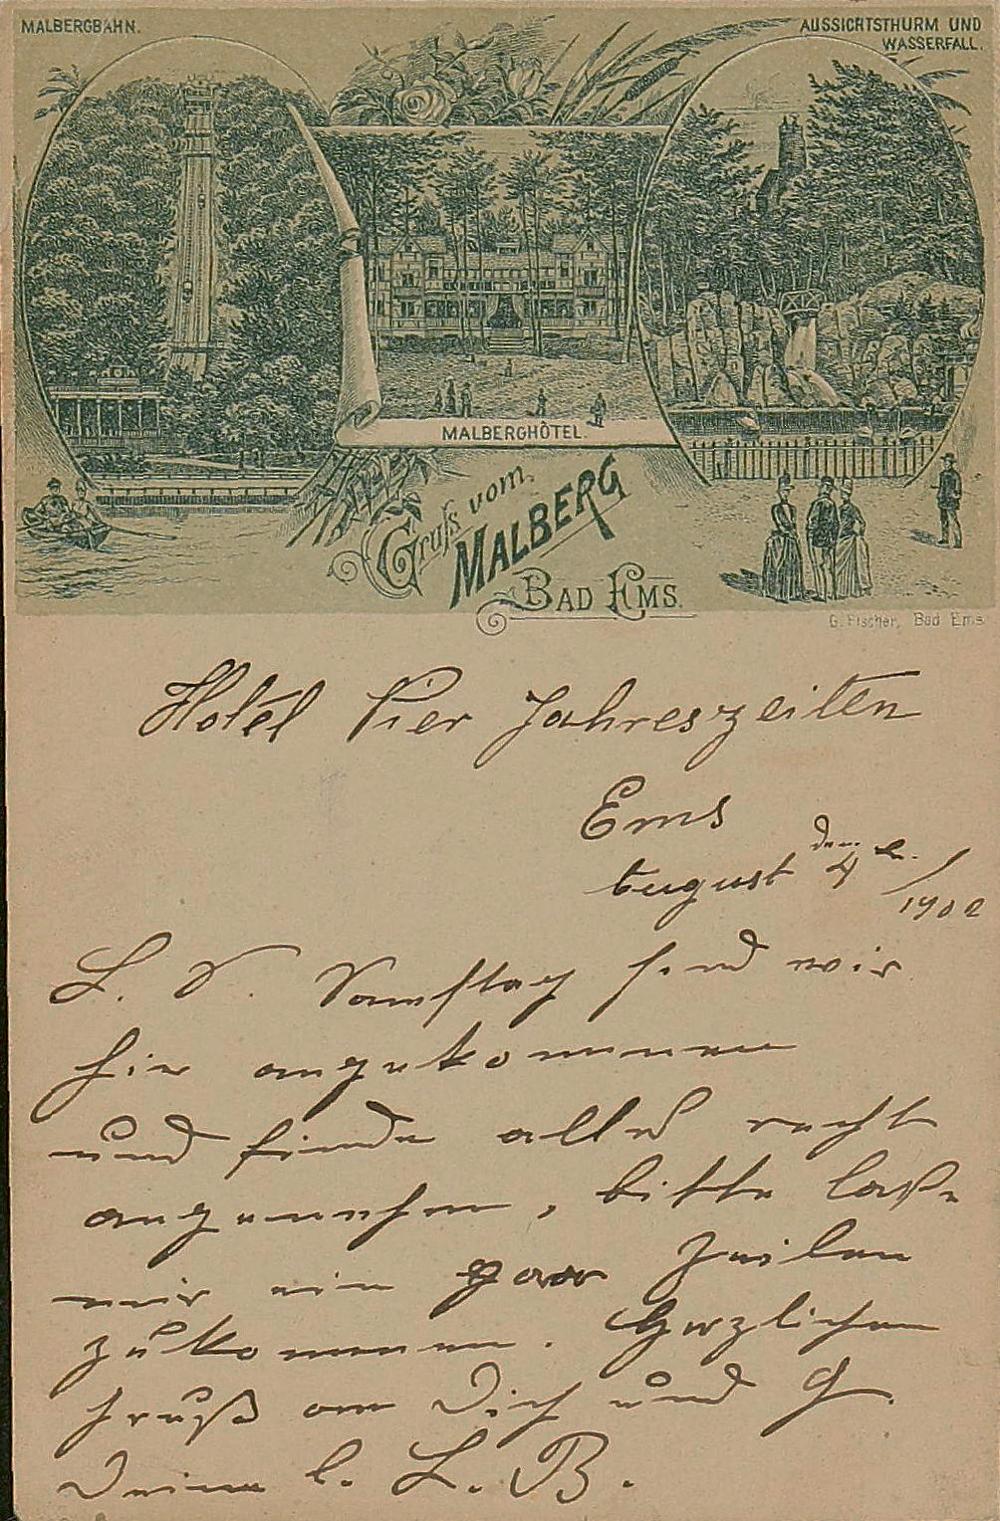 MALBERGBAHN.
AUSSICHTSTHURM UND
WASSERFALL.
MALBERGHÔTEL.
Gruss vom
MALBERG
BAD EMS.
G. Fischer, Bad Ems
Hotel Vier Jahreszeiten
Ems
den
August 4 1902
L. S. Samstag sind wir
hier angekommen
und finde alles recht
angenehm, bitte laße
mir ein paar Zeilen
zukommen. Herzlichen
Gruß an Dich und G.
Deine l. L. B.